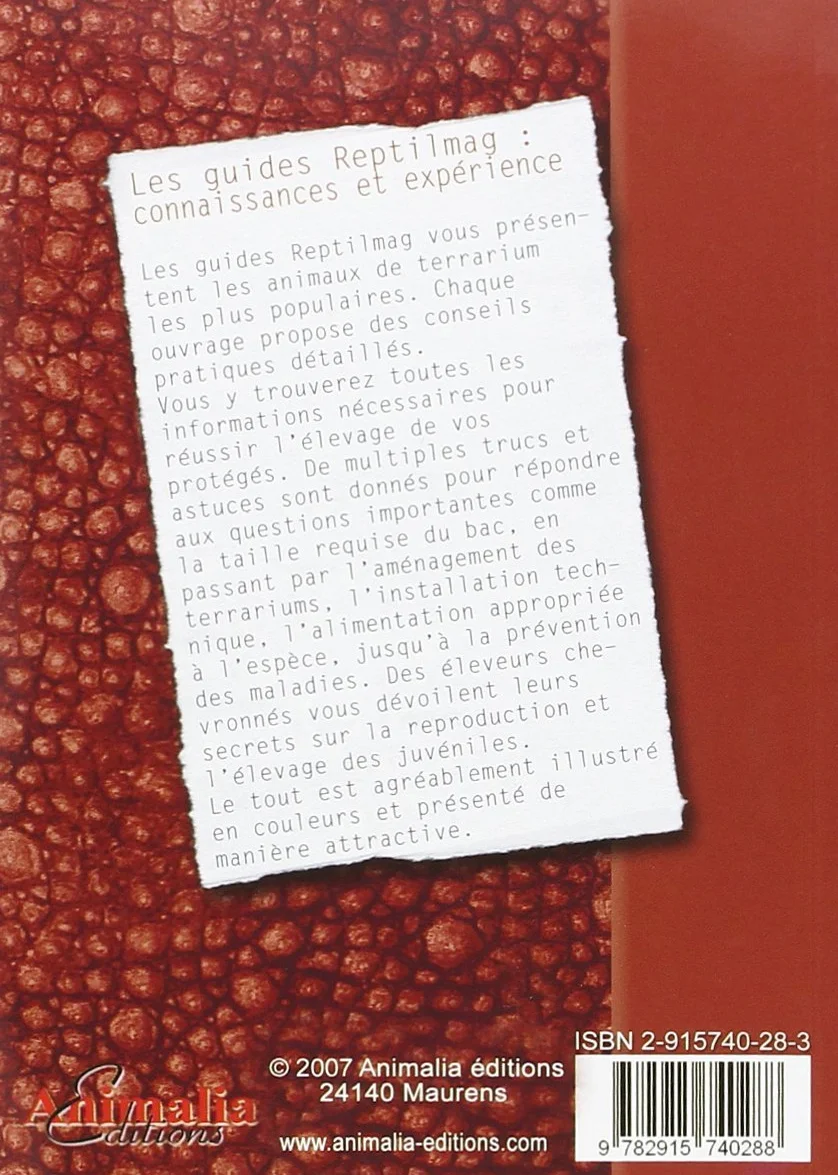 Les guides Reptilmag :
connaissances et expérience
Les guides Reptilmag vous présen-
tent les animaux de terrarium
les plus populaires. Chaque
ouvrage propose des conseils
pratiques détaillés.
Vous y trouverez toutes les
informations nécessaires pour
réussir l'élevage de vos
protégés. De multiples trucs et
astuces sont donnés pour répondre
aux questions importantes comme
la taille requise du bac, en
passant par l'aménagement des
terrariums, l'installation tech-
nique, l'alimentation appropriée
à l'espèce, jusqu'à la prévention
des maladies. Des éleveurs che-
vronnés vous dévoilent leurs
secrets sur la reproduction et
l'élevage des juvéniles.
Le tout est agréablement illustré
en couleurs et présenté de
manière attractive.
ISBN 2-915740-28-3
© 2007 Animalia éditions
24140 Maurens
www.animalia-editions.com
Animalia
Editions
9 782915 740288